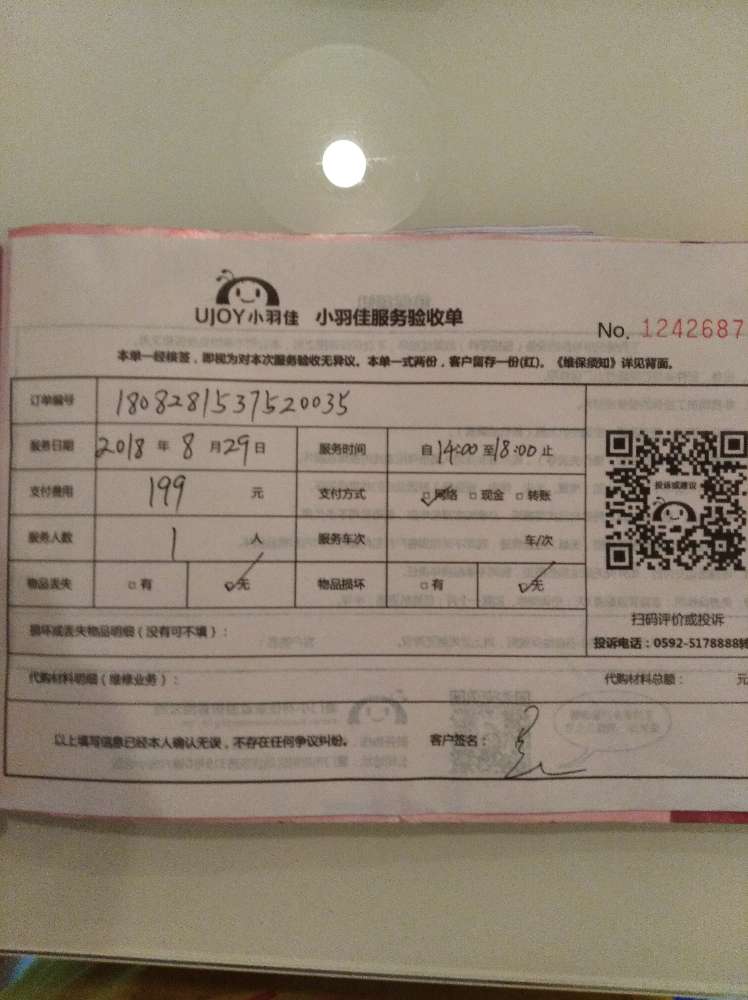 UJOY小羽佳 小羽佳服务验收单
No. 1242687
本单一经核签，即视为对本次服务验收无异议。本单一式两份，客户留存一份(红)。《维保须知》详见背面。
订单编号 1808281537520035
服务日期 2018 年 8 月 29 日 服务时间 自 14:00 至 18:00 止
支付费用 199 元 支付方式 □网络 □现金 □转账
服务人数 1 人 服务车次 车/次
物品丢失 □有 □无 物品损坏 □有 □无
投诉或建议
扫码评价或投诉
投诉电话：0592-5178888转
损坏或丢失物品明细（没有可不填）：
代购材料明细（维修业务）： 代购材料总额： 元
以上填写信息已经本人确认无误，不存在任何争议纠纷。 客户签名：